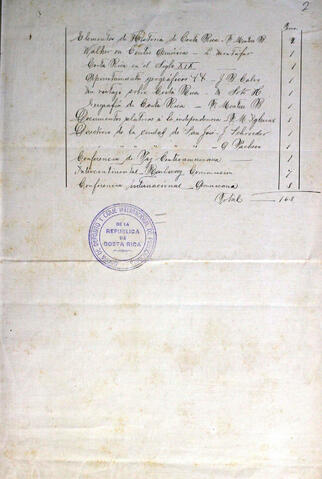 2
Elementos de Historia de Costa Rica - F. Montero B. 2
Walker en Centro America - L. Montúfar 1
Costa Rica en el Siglo XIX 1
Apuntamientos geográficos - J. B. Calvo 1
Un viaje sobre Costa Rica 1
Geografía de Costa Rica - F. Montero B 1
Documentos relativos á la independencia - F. M. Iglesias 1
Directorio de la ciudad de San José - J. Schroeder 1
" " " " " - A. Pacheco 1
Conferencia de Paz Centroamericana 1
Intercontinental Railway Commission 7
Conferencia internacional Americana 8
Total 168
DEPOSITO Y CANJE INTERNACIONAL DE PUBLICACIONES
DE LA
REPUBLICA
DE
COSTA RICA